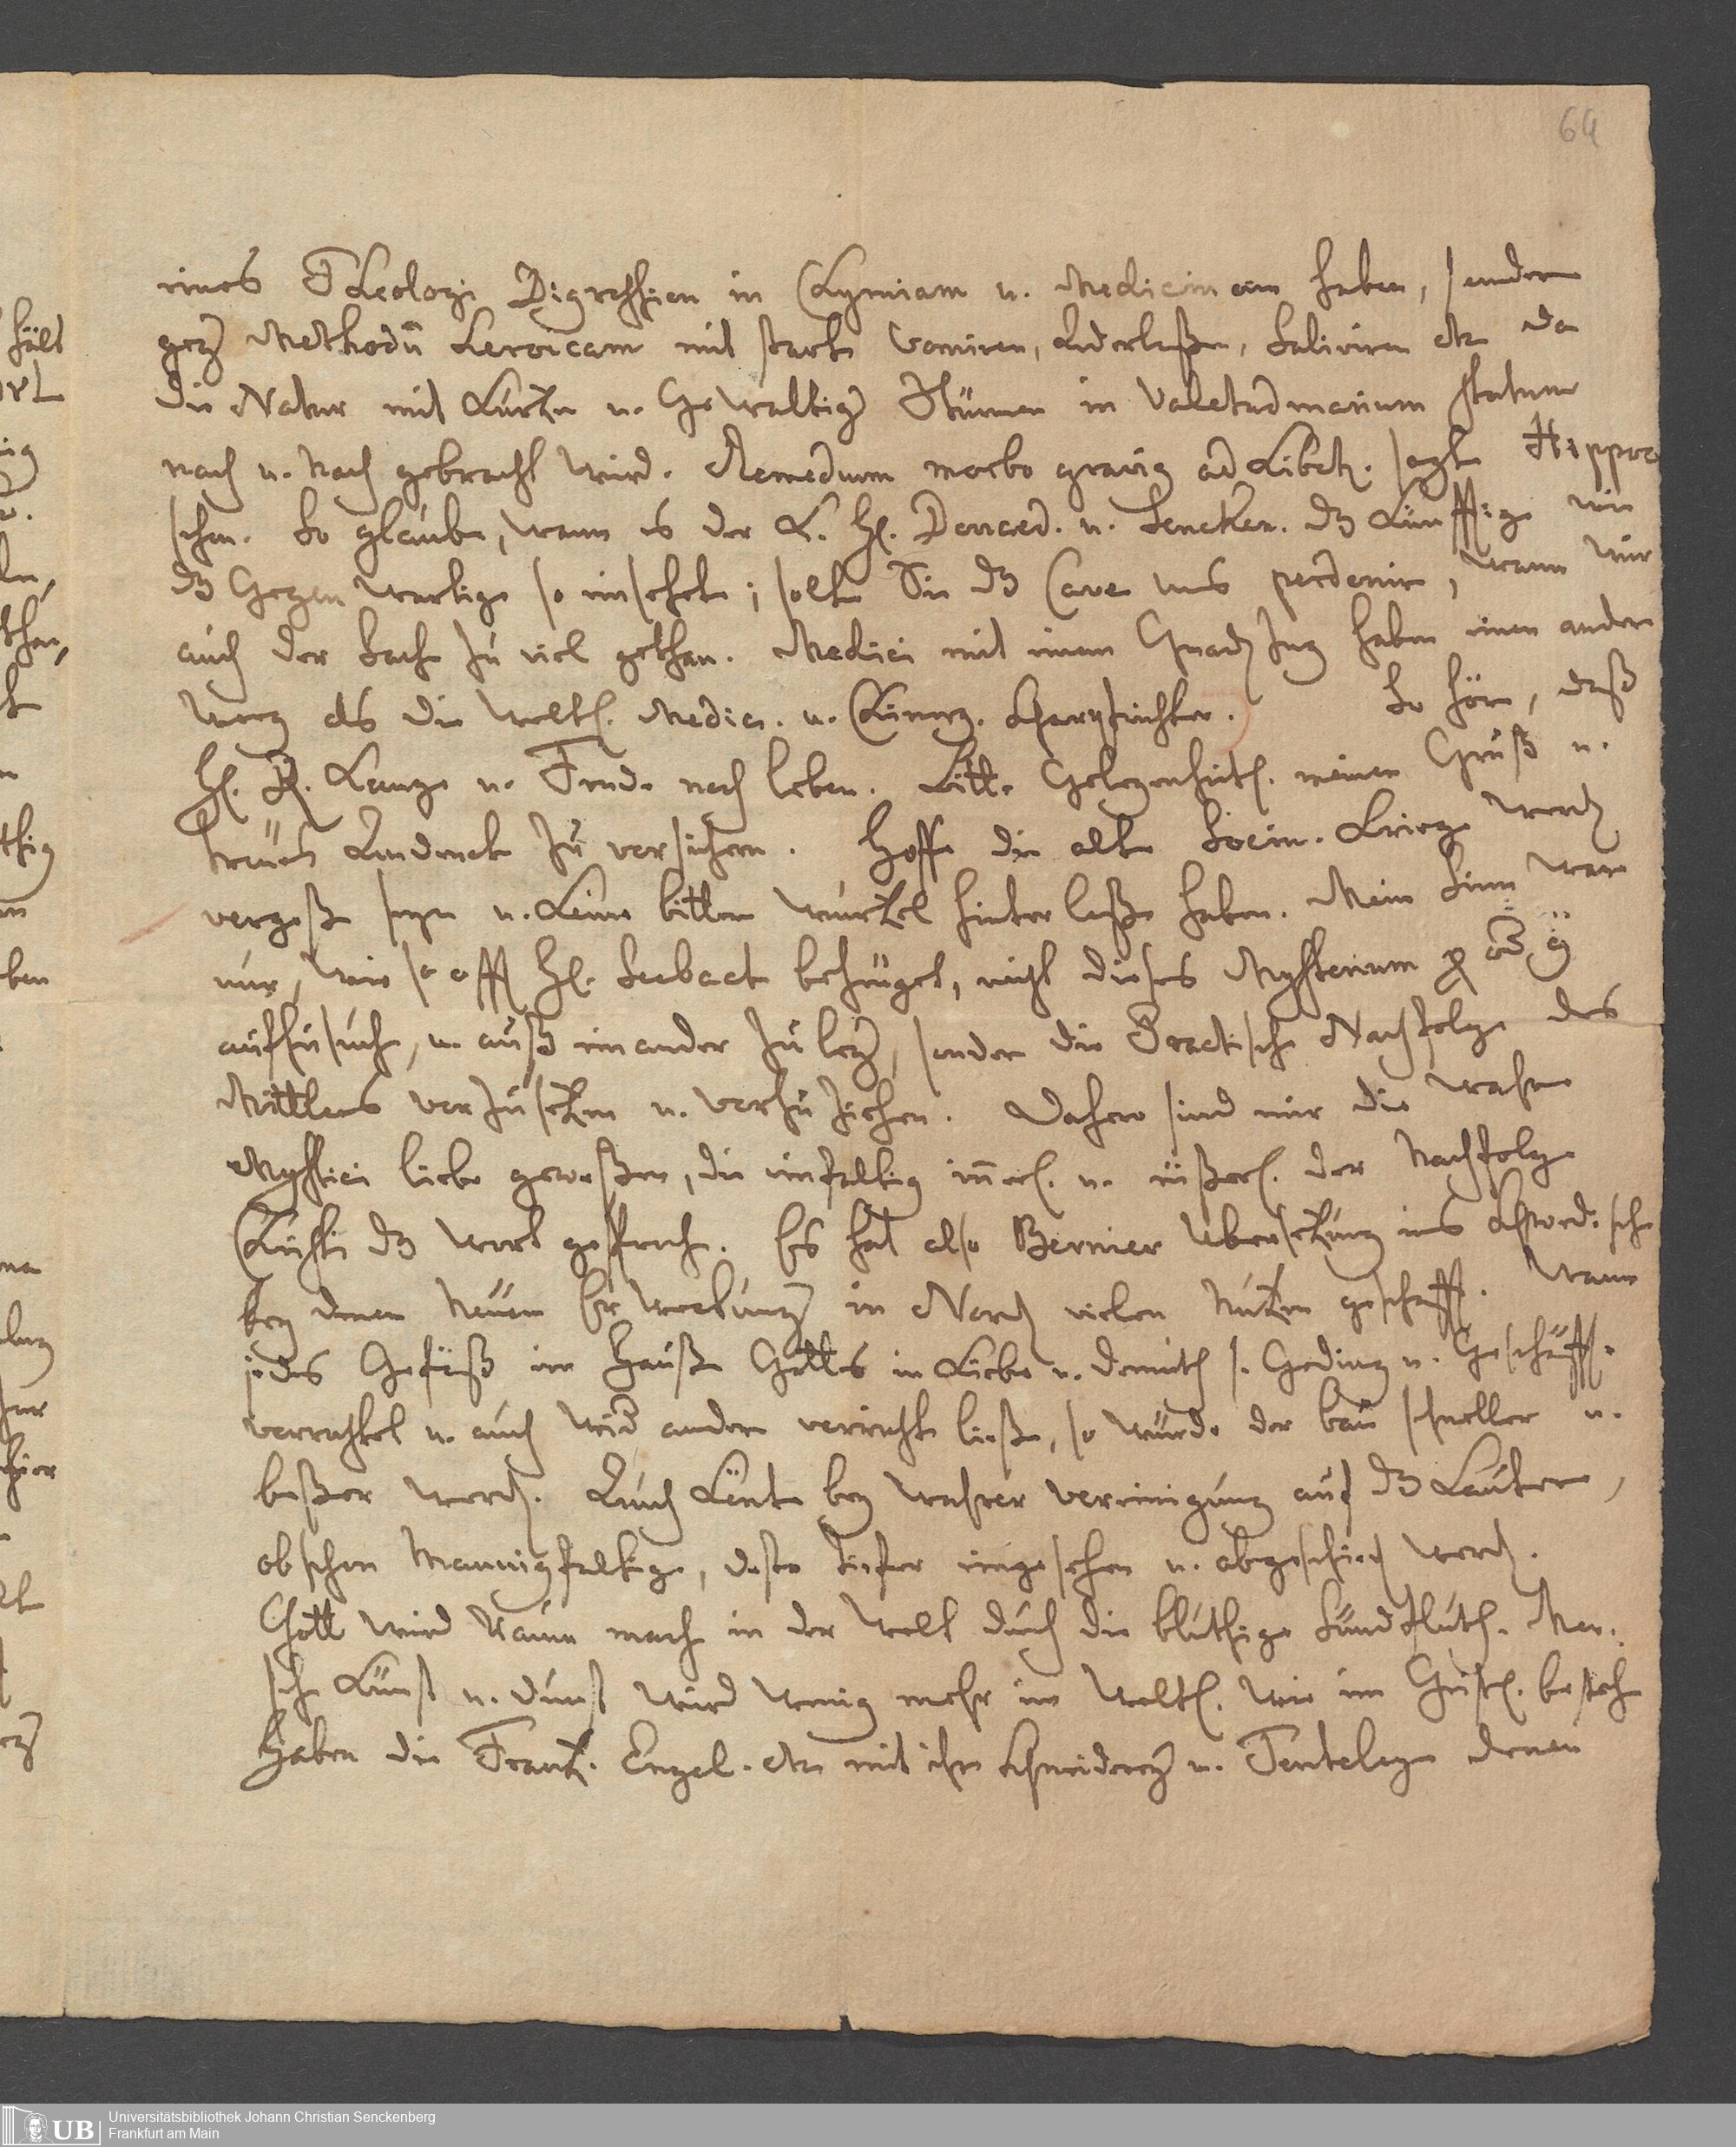 64
eines Theologi Digression in Chymiam u. Medicinam haben, sondern
geg Methodũ heroicam mit starke Vomiren, Aderlaßen, Saliviren etc da
die Natur mit Kurtzn u. Gewaltig Stürmen in Valetudinarium Statum
nach u. nach gebracht wird. Remedium morbo gravig ad sagte Hippoc
schon. So glaube, wann es der L. H. u. Sencken. dz Künfftige wie
dz Gegenwartige so einsehete; solte Sie dz Cave uns wann wir
auch der Sach zu viel gethan. Medici mit einem Gnad Zug haben einen andern
weg als die welt. Medic. u. Chirurg. Scharffrichter. So höre, daß
H. D. Lange u. Freud. noch leben. Bitte Gelegenheit. meinen Gruß u.
treues Andenck zu versichern. Hoffe die alte Socin. Kriege werd
vergeß seyn u. Keine bittere wurtzel hinterlaße haben. Mein Sinn war
nur, wie so offt H. Seebach bezeuget, nicht dieses Mysterium
aufzusuche, u. auß einander zu leg, sonder die Practische Nachfolge des
Mittlers vorzusetzen u. vorzuziehen. Dahero sind mir die wahre
Mystici liebe geweßen, die einfaltig iñerl. u. äußerl. der Nachfolge
Christi dz wort gesproch. Es hat also Bernier Ubersetzung ins Schwedische
bey denen Neuen Erweckung in Nord vielen Nutzen geschafft. Wann
jedes Gefäß im Hauße Gottes in Liebe u. Demuth s. Geding u. Geschäfft
verrichtet u. auch wied andere verricht ließe, so würde der bau schneller u.
beßer werd. Auch Könte bey wahrer Vereinigung auf dz Lautere,
obschon Mannigfaltige, desto tiefer eingesehen u. abgeschied werd.
Gott wird Raum mach in der Welt durch die bluthige Sündfluth. Men-
sche Kunst u. dunst wird wenig mehr im Welt. wie im Geist. besteh
Haben die Frantz. Engel. etc mit ihre Schneiderey u. denen
hält
thig
ben
hier